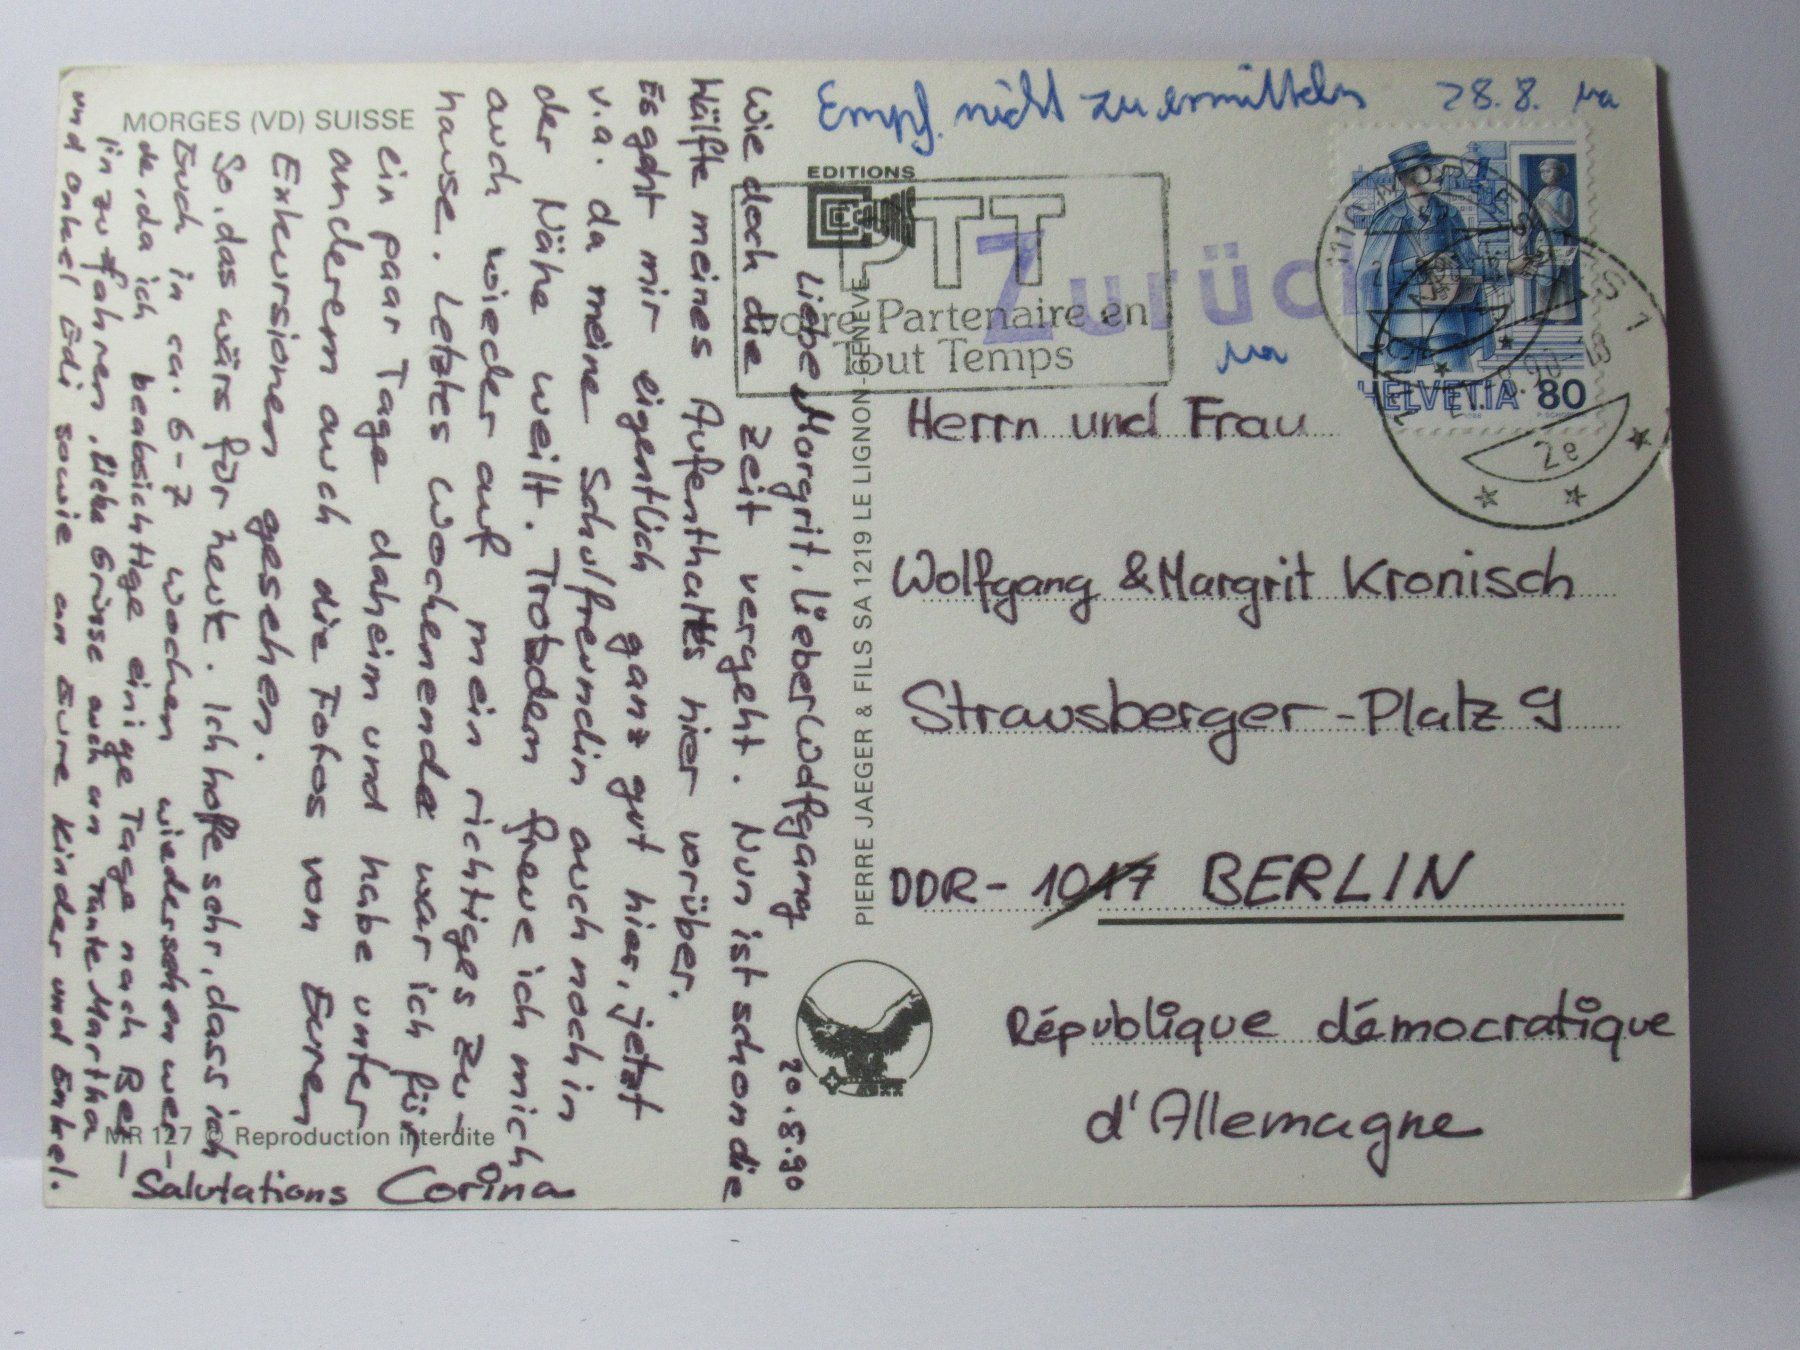 MORGES (VD) SUISSE
Empf. nicht zu ermitteln 28.8.
EDITIONS
PTT
Votre Partenaire en
Tout Temps
Zurück
HELVETIA 80
1110 MORGES 1
2e
PIERRE JAEGER & FILS SA 1219 LE LIGNON-GENEVE
Herrn und Frau
Wolfgang & Margrit Kronisch
Strausberger-Platz 9
DDR - 1017 BERLIN
République démocratique
d'Allemagne
20.8.90
Liebe Margrit, lieber Wolfgang
Wie doch die Zeit vergeht. Nun ist schon die
Hälfte meines Aufenthaltes hier vorüber.
Es geht mir eigentlich ganz gut hier, jetzt
v.a. da meine Schulfreundin auch noch in
der Nähe weilt. Trotzdem freue ich mich
auch wieder auf mein richtiges Zu-
hause. Letztes Wochenende war ich für
ein paar Tage daheim und habe unter
anderem auch die Fotos von Euren
Exkursionen gesehen.
So, das wärs für heute. Ich hoffe sehr, dass ich
Euch in ca. 6-7 Wochen wiedersehen wer-
de, da ich beabsichtige einige Tage nach Ber-
lin zu fahren. Liebe Grüsse auch an Tante Martha
und Onkel Edi sowie an Eure Kinder und Enkel.
Salutations Corina
MR 127 © Reproduction interdite